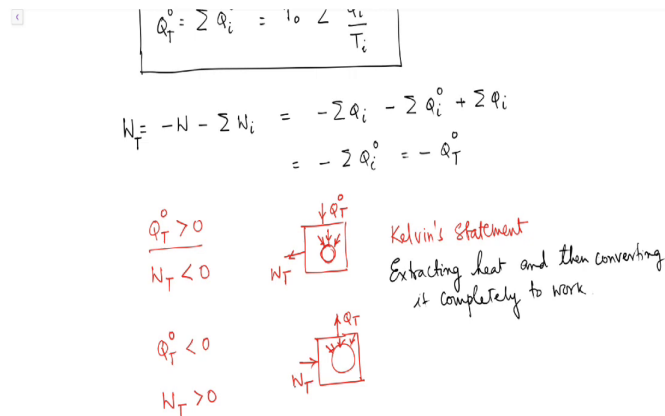 Q_T^0 = Σ Q_i^0 = T_0 Σ Q_i/T_i
W_T = -W - Σ W_i = -ΣQ_i - ΣQ_i^0 + ΣQ_i
= -ΣQ_i^0 = -Q_T^0
Q_T^0 > 0
W_T < 0
Q_T^0
W_T
Kelvin's Statement
Extracting heat and then converting
it completely to work.
Q_T^0 < 0
W_T > 0
Q_T
W_T